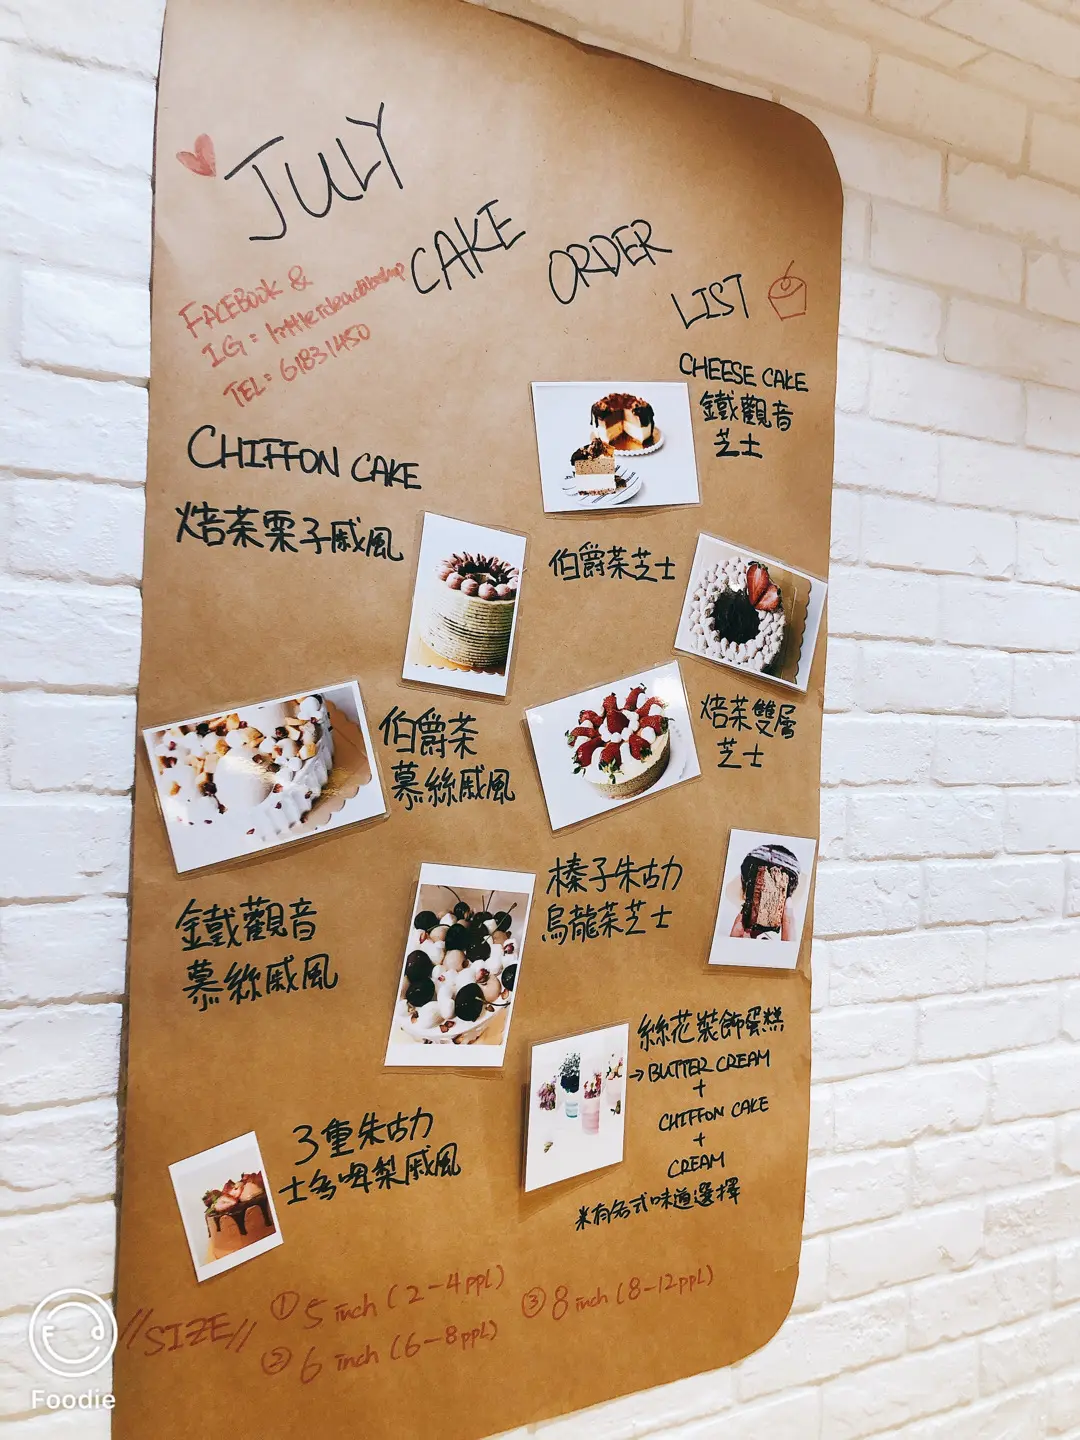 JULY
CAKE
ORDER
LIST
FACEBOOK &
IG:
TEL: 61831450
CHIFFON CAKE
焙茶栗子戚風
伯爵茶
慕絲戚風
鐵觀音
慕絲戚風
3重朱古力
士多啤梨戚風
CHEESE CAKE
鐵觀音
芝士
伯爵茶芝士
焙茶雙層
芝士
榛子朱古力
烏龍茶芝士
絲花裝飾蛋糕
→BUTTER CREAM
+
CHIFFON CAKE
+
CREAM
*有各式味道選擇
//SIZE//
① 5 inch (2-4ppl)
② 6 inch (6-8ppl)
③ 8 inch (8-12ppl)
Foodie